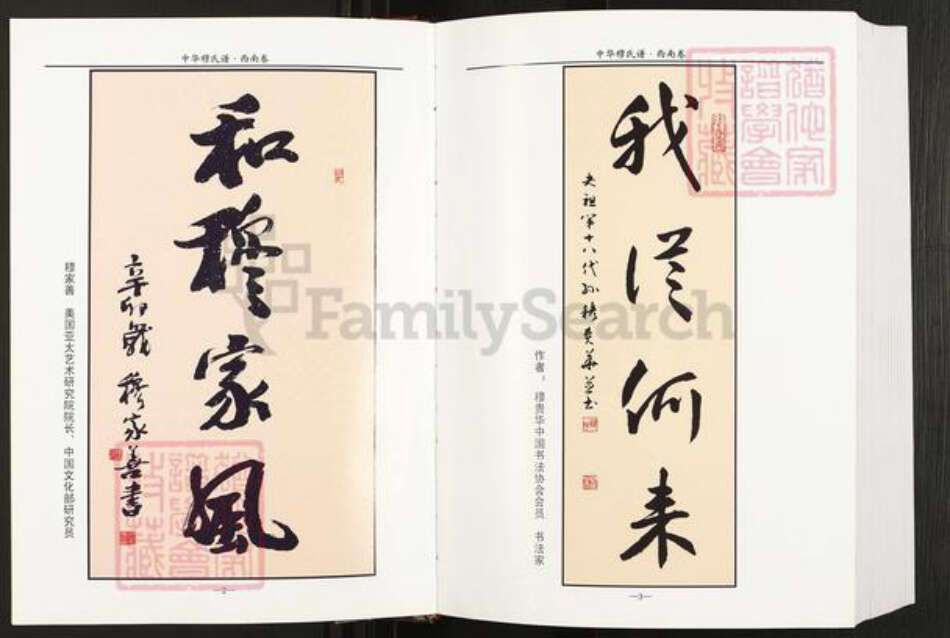 中华穆氏谱·西南卷
和穆家風
辛卯歲 穆家善書
穆家善 美国亚太艺术研究院院长、中国文化部研究员
—2—
中华穆氏谱·西南卷
我從何来
太祖第十八代孙穆贵华並书
作者：穆贵华中国书法协会会员 书法家
—3—
FamilySearch